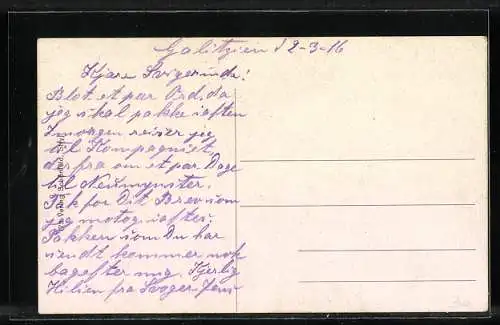 Galitzien d 2-3-16
Kjære Svigerinde!
Blot et par Ord, da
jeg skal pakke iaften
Imorgen reiser jeg
til Kompagniet,
derfra om et par Dage
til Neümynster.
Tak for Dit Brev som
jeg motog iaften.
Pakken som Du har
sendt kommer nok
bagefter mig. Kjerlig
Hilsen fra Svoger Jens